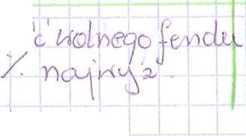 ć wolnego fendu
% najwyż.